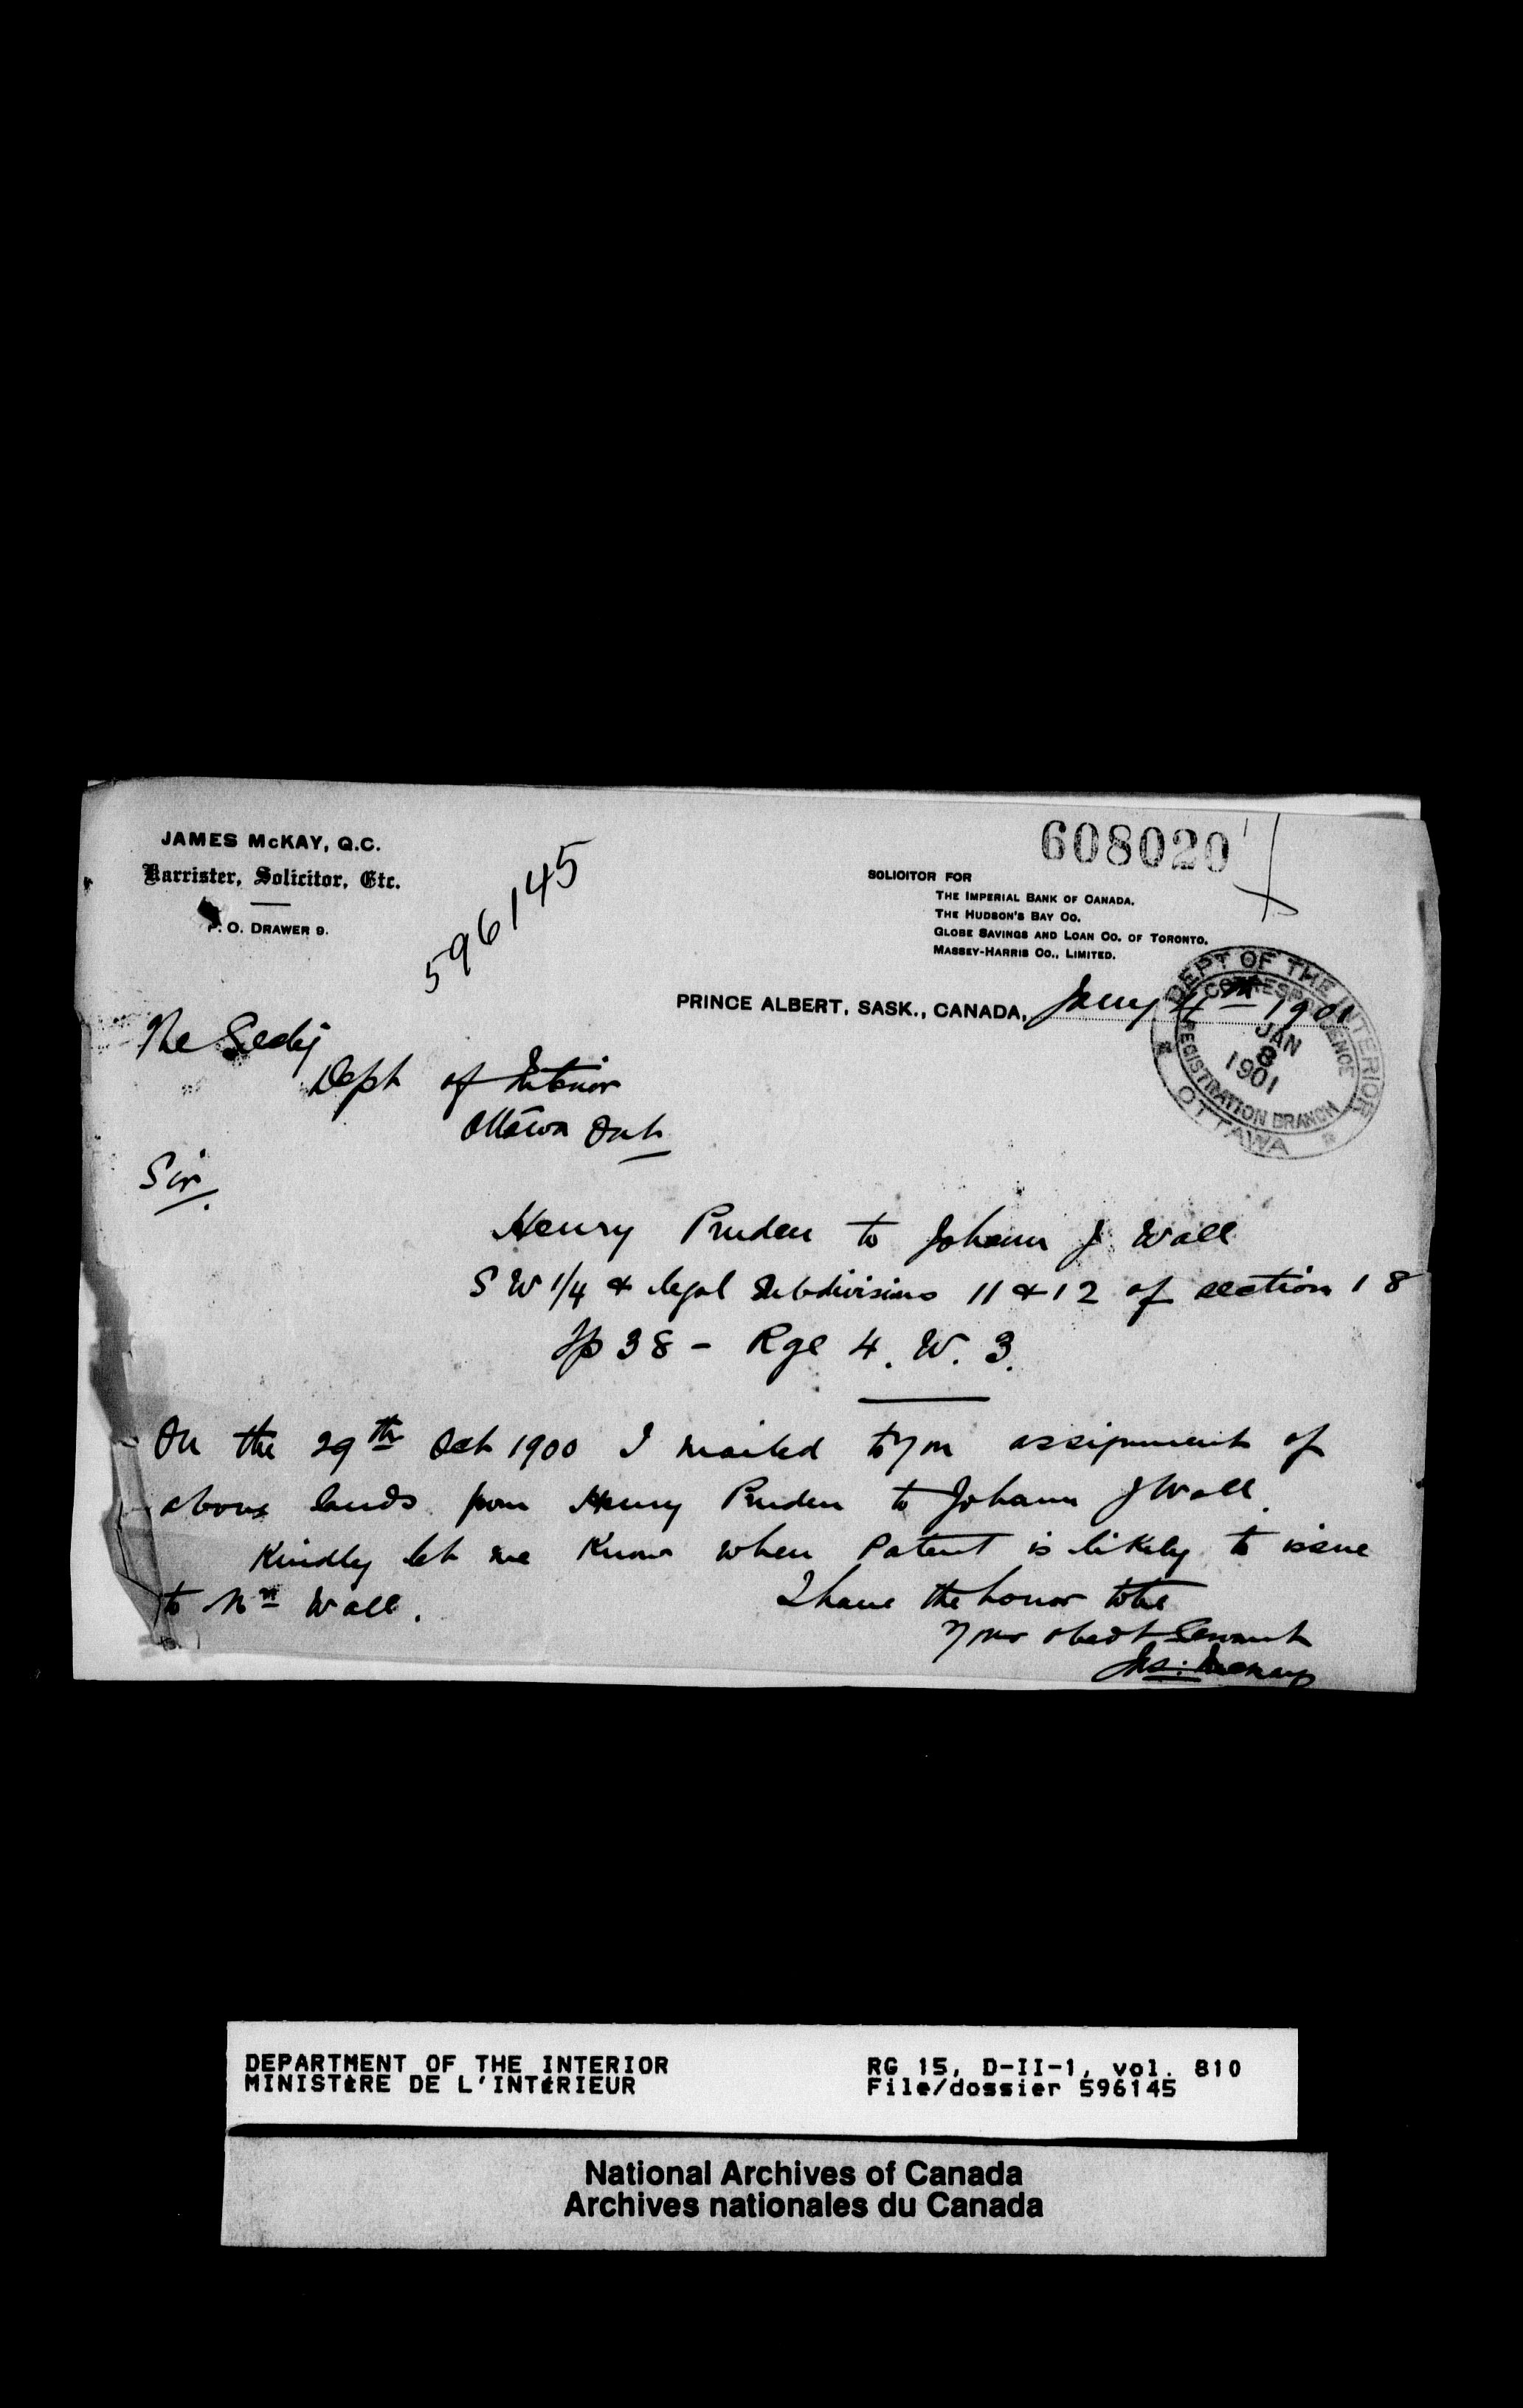 JAMES McKAY, Q.C.
Barrister, Solicitor, Etc.
P. O. DRAWER 9.
596145
608020
SOLICITOR FOR
THE IMPERIAL BANK OF CANADA.
THE HUDSON'S BAY CO.
GLOBE SAVINGS AND LOAN CO. OF TORONTO.
MASSEY-HARRIS CO., LIMITED.
PRINCE ALBERT, SASK., CANADA, Jany 4th 1901
DEPT OF THE INTERIOR
CORRESPONDENCE
JAN
8
1901
REGISTRATION BRANCH
OTTAWA
The Secty
Dept of Interior
Ottawa Ont
Sir.
Henry Pruden to Johann J Wall
S W 1/4 & legal Subdivisions 11 & 12 of section 18
Tp 38 - Rge 4. W. 3.
On the 29th Oct 1900 I mailed to you assignment of
above lands from Henry Pruden to Johann J Wall.
Kindly let me Know when Patent is likely to issue
to Mr Wall.
I have the honor to be
Your obedt Servant
Jas. McKay
DEPARTMENT OF THE INTERIOR
MINISTÈRE DE L'INTÉRIEUR
RG 15, D-II-1, vol. 810
File/dossier 596145
National Archives of Canada
Archives nationales du Canada